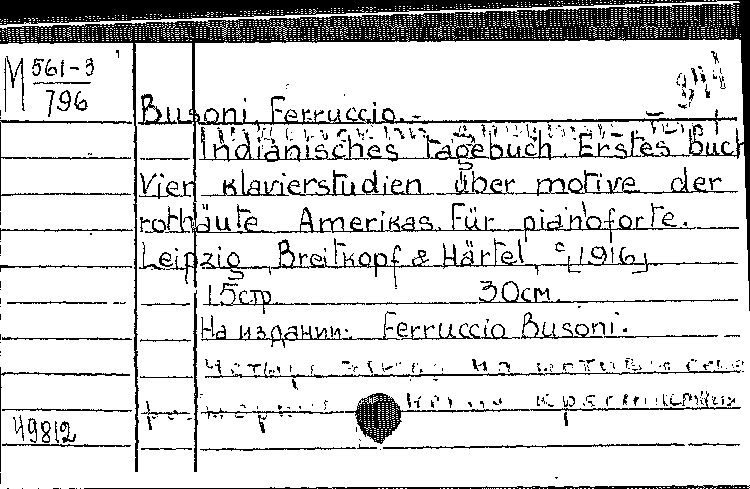 М 561-3
796
Busoni, Ferruccio.-
Indianisches tagebuch. Erstes buch
Vier klavierstudien über motive der
rothäute Amerikas. Für pianoforte.
Leipzig, Breitkopf & Härtel, c[1916].
15стр. 30см.
На издании: Ferruccio Busoni.
на мотивы
49812